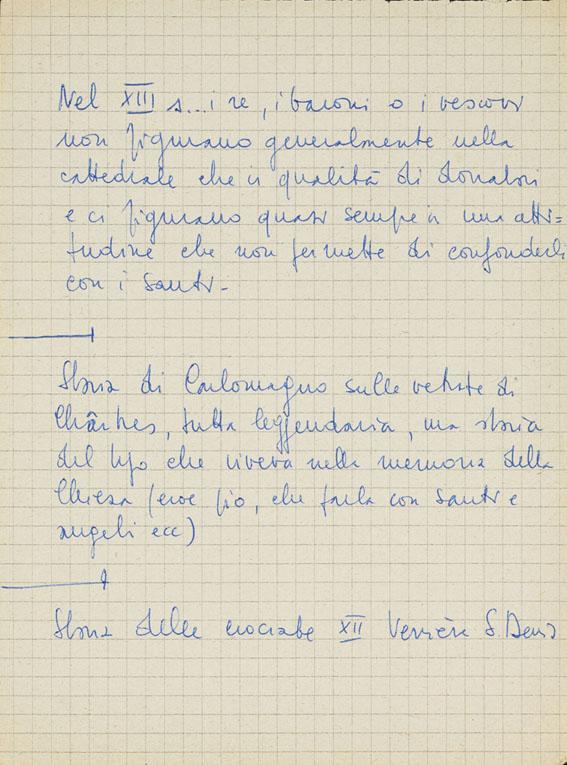 Nel XIII s... i re, i baroni o i vescovi
non figurano generalmente nella
cattedrale che in qualità di donatori
e ci figurano quasi sempre in una atti=
tudine che non permette di confonderli
con i santi -
Storia di Carlomagno sulle vetrate di
Chârtres, tutta leggendaria, ma storia
del tipo che viveva nella memoria della
Chiesa (eroe pio, che parla con santi e
angeli ecc)
Storia delle crociate XII Verrière S. Denis